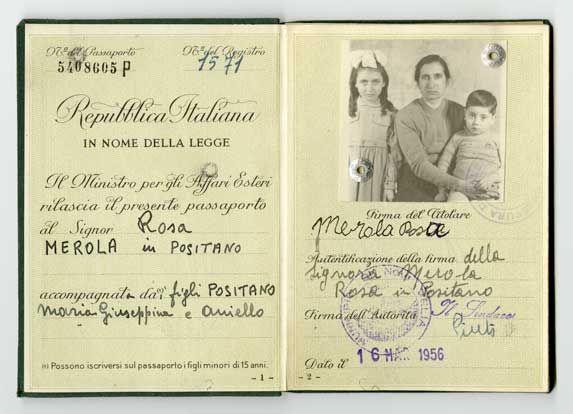 N.º del Passaporto
N.º del Registro
5408605 P
1571
Repubblica Italiana
IN NOME DELLA LEGGE
Il Ministro per gli Affari Esteri
rilascia il presente passaporto
al Signor Rosa
MEROLA in POSITANO
accompagnata da(1) figli POSITANO
Maria Giuseppina e Aniello
(1) Possono iscriversi sul passaporto i figli minori di 15 anni.
- 1 -
Firma del Titolare
Merola Rosa
Autenticazione della firma della
signora Merola
Rosa in Positano
Firma dell'Autorità Il Sindaco
Dato il 16 MAR 1956
- 2 -